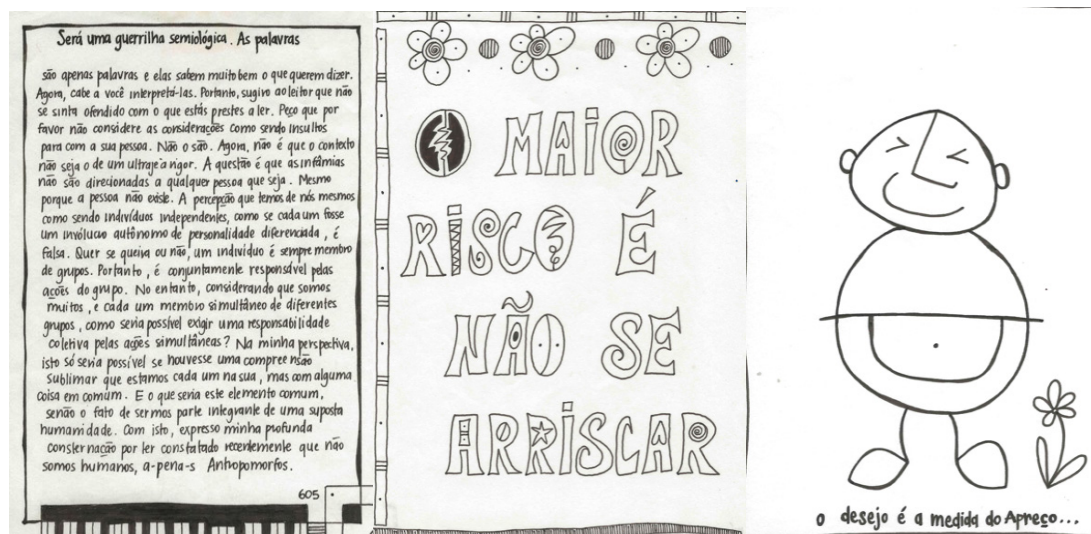 Será uma guerrilha semiológica. As palavras
são apenas palavras e elas sabem muito bem o que querem dizer.
Agora, cabe a você interpretá-las. Portanto, sugiro ao leitor que não
se sinta ofendido com o que estás prestes a ler. Peço que por
favor não considere as considerações como sendo insultos
para com a sua pessoa. Não o são. Agora, não é que o contexto
não seja o de um ultraje a rigor. A questão é que as infâmias
não são direcionadas a qualquer pessoa que seja. Mesmo
porque a pessoa não existe. A percepção que temos de nós mesmos
como sendo indivíduos independentes, como se cada um fosse
um invólucro autônomo de personalidade diferenciada, é
falsa. Quer se queira ou não, um indivíduo é sempre membro
de grupos. Portanto, é conjuntamente responsável pelas
ações do grupo. No entanto, considerando que somos
muitos, e cada um membro simultâneo de diferentes
grupos, como seria possível exigir uma responsabilidade
coletiva pelas ações simultâneas? Na minha perspectiva,
isto só seria possível se houvesse uma compreensão
sublimar que estamos cada um na sua, mas com alguma
coisa em comum. E o que seria este elemento comum,
senão o fato de sermos parte integrante de uma suposta
humanidade. Com isto, expresso minha profunda
consternação por ter constatado recentemente que não
somos humanos, a-pena-s Anhopomorfos.
605
O MAIOR
RISCO É
NÃO SE
ARRISCAR
o desejo é a medida do Apreço...